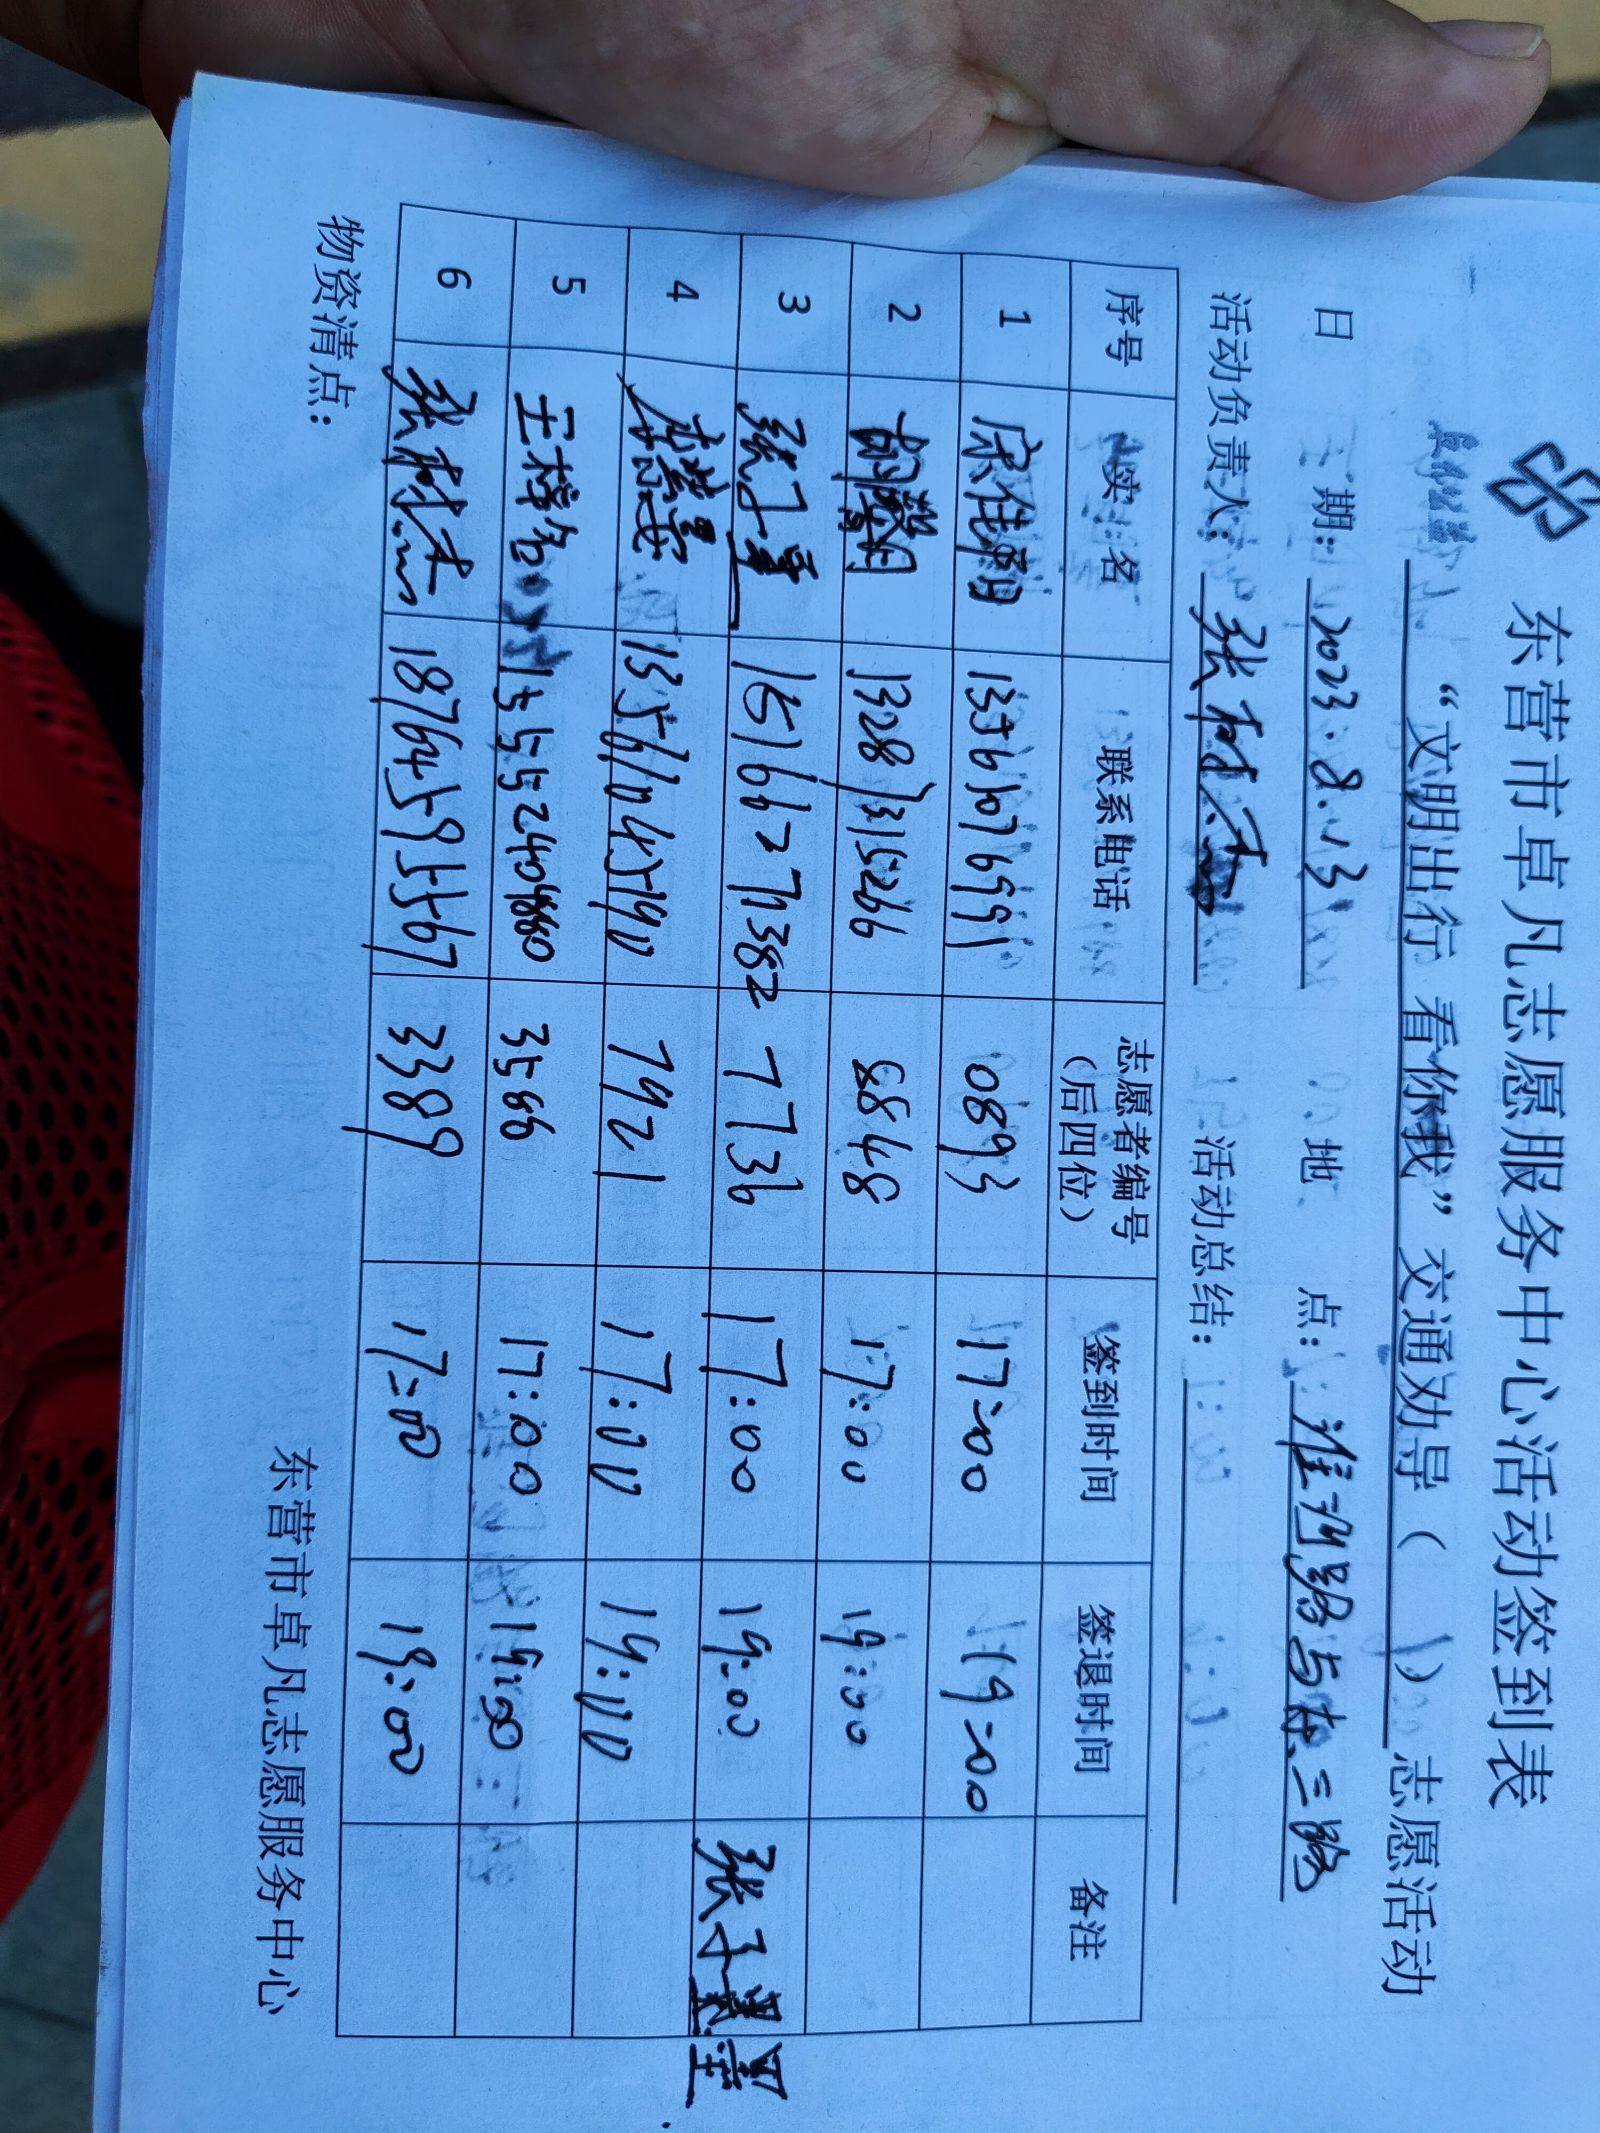 东营市卓凡志愿服务中心活动签到表
“文明出行 看你我”交通劝导( )志愿活动
日 期: 2023.8.13 地 点: 淮河路与东三路
活动负责人: 活动总结:
序号 实 名 联系电话 志愿者编号(后四位) 签到时间 签退时间 备注
1 宋佳阳 13561076991 0893 17:00 19:00
2 胡馨月 13281315266 8848 17:00 19:00
3 张子墨 15166271382 7736 17:00 19:00 张子墨
4 13561045790 7921 17:00 19:00
5 3566 17:00 19:00
6 18764595567 3389 17:00 19:00
物资清点:
东营市卓凡志愿服务中心